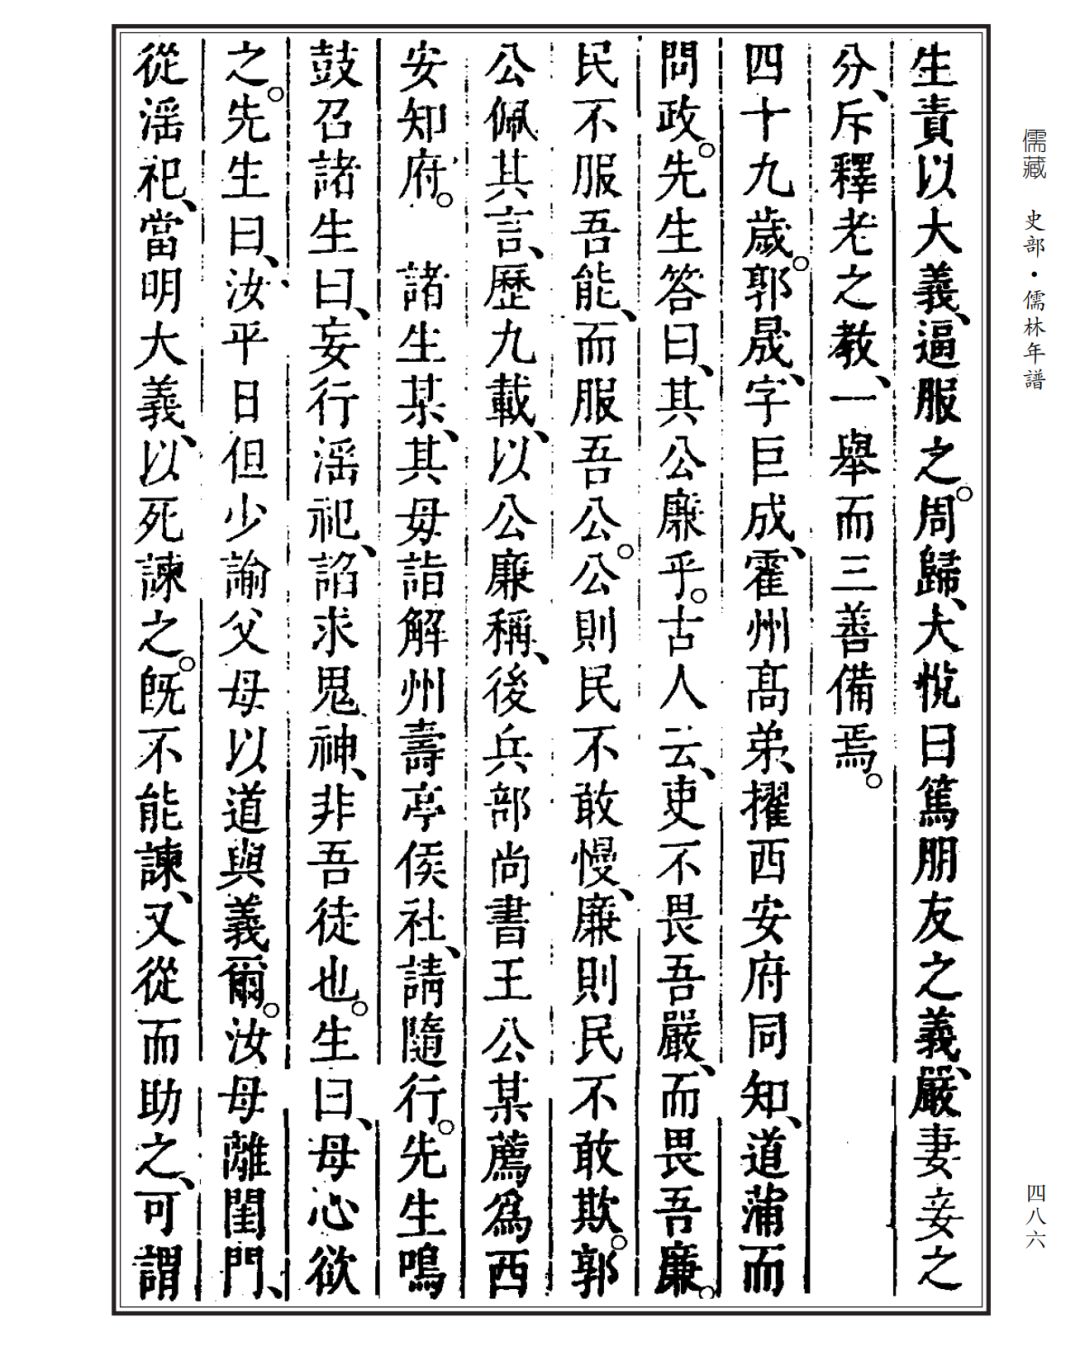 儒藏 史部·儒林年譜
生責以大義、逼服之。周歸、大悅曰篤朋友之義、嚴妻妾之
分、斥釋老之教、一舉而三善備焉。
四十九歲。郭晟、字巨成、霍州高弟、擢西安府同知、道蒲而
問政。先生答曰、其公廉乎。古人云、吏不畏吾嚴、而畏吾廉。
民不服吾能、而服吾公。公則民不敢慢、廉則民不敢欺。郭
公佩其言、歷九載、以公廉稱、後兵部尚書王公某薦為西
安知府。 諸生某、其母詣解州壽亭侯社、請隨行。先生鳴
鼓召諸生曰、妄行滛祀、諂求鬼神、非吾徒也。生曰、母心欲
之。先生曰、汝平日但少諭父母以道與義爾。汝母離閨門、
從滛祀、當明大義、以死諫之。旣不能諫、又從而助之、可謂
四八六